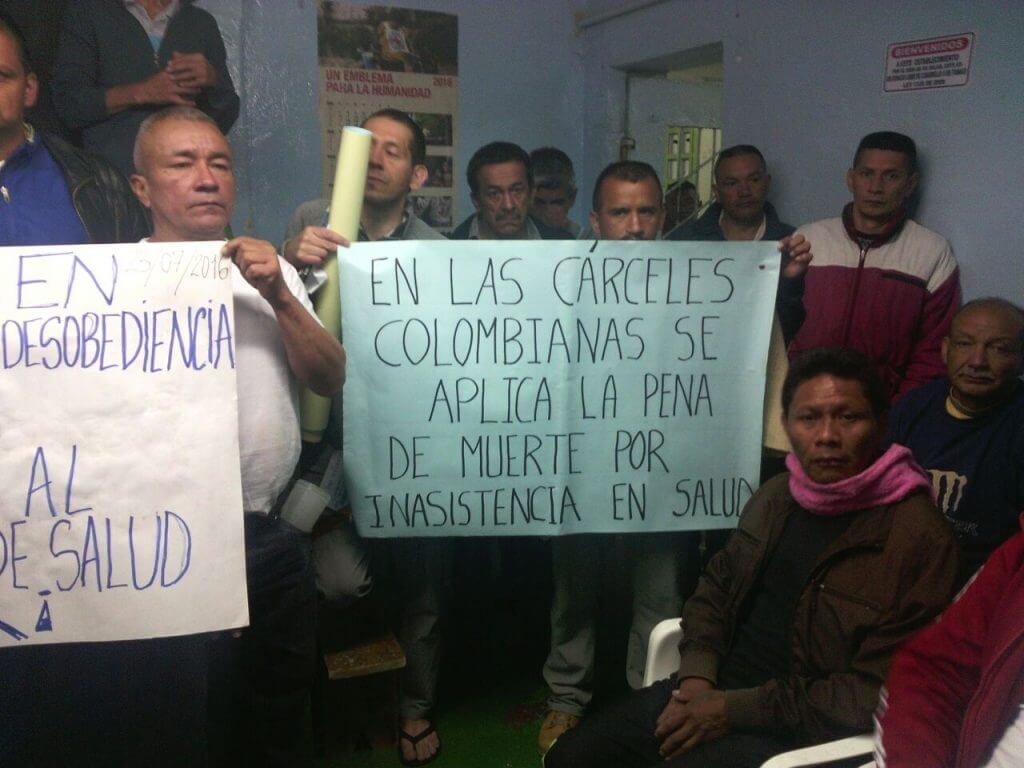 EN 25/07/2016
DESOBEDIENCIA
AL
DE SALUD
EN LAS CÁRCELES
COLOMBIANAS SE
APLICA LA PENA
DE MUERTE POR
INASISTENCIA EN SALUD
UN EMBLEMA 2016
PARA LA HUMANIDAD
BIENVENIDOS
A ESTE ESTABLECIMIENTO